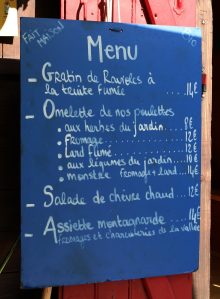 FAIT MAISON
Menu
- Gratin de Ravioles à
la truite fumée ....14€
- Omelette de nos poulettes
• aux herbes du jardin .. 8€
• fromage ........... 12€
• Lard fumé ......... 12€
• aux légumes du jardin .. 10€
• monstre fromage + lard .. 14€
- Salade de chèvre chaud .... 12€
- Assiette montagnarde ..... 14€
fromages et charcuteries de la vallée